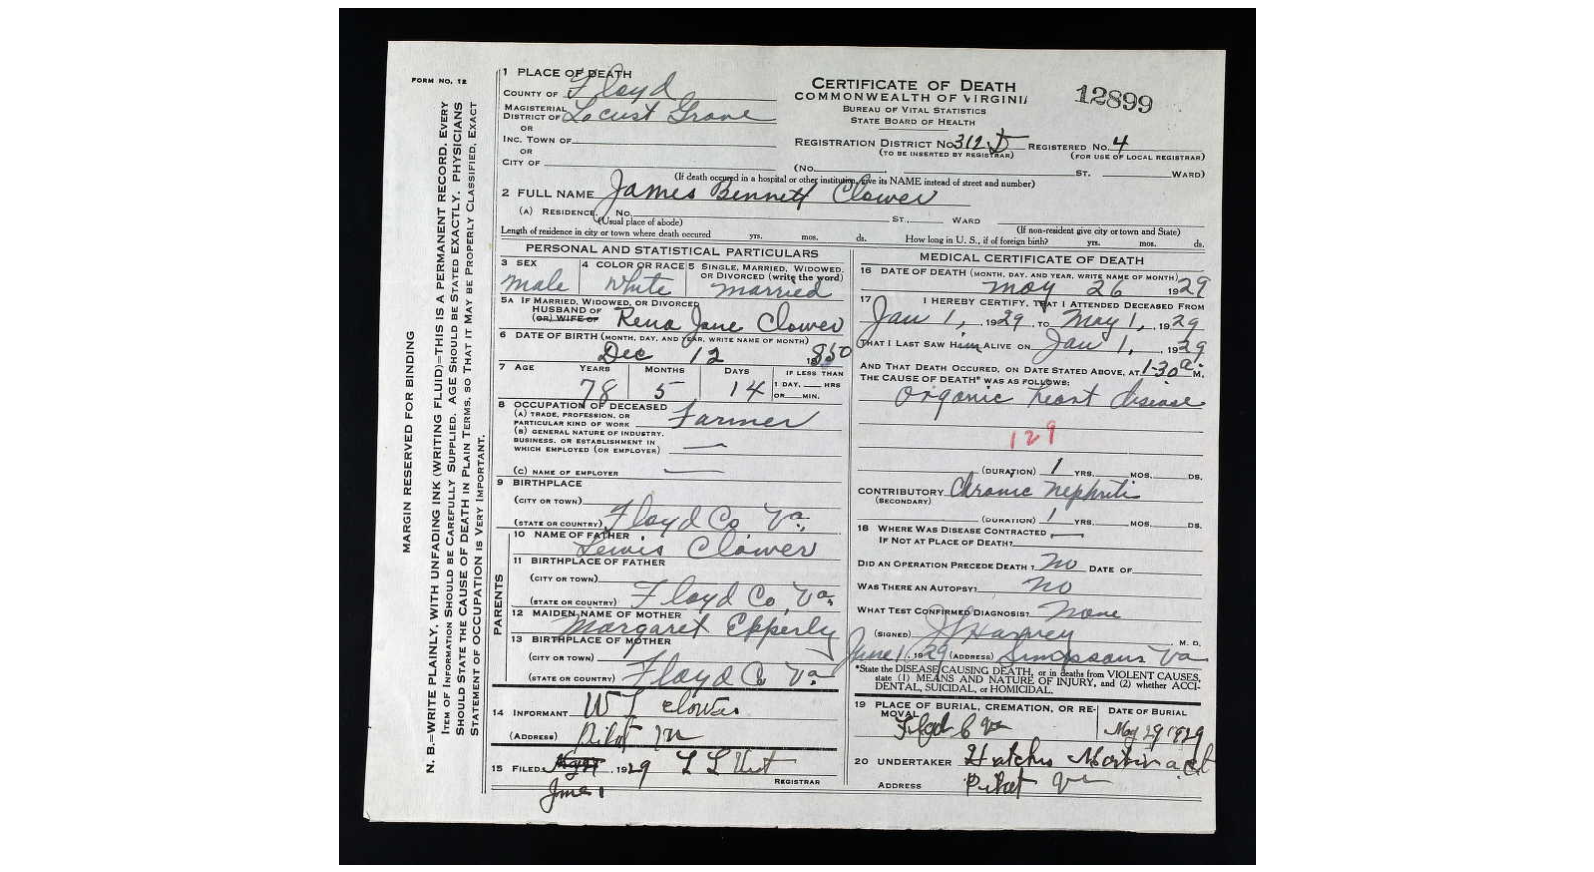 FORM NO. 12
MARGIN RESERVED FOR BINDING
N. B.=WRITE PLAINLY, WITH UNFADING INK (WRITING FLUID)=THIS IS A PERMANENT RECORD. EVERY
ITEM OF INFORMATION SHOULD BE CAREFULLY SUPPLIED. AGE SHOULD BE STATED EXACTLY. PHYSICIANS
SHOULD STATE THE CAUSE OF DEATH IN PLAIN TERMS, SO THAT IT MAY BE PROPERLY CLASSIFIED. EXACT
STATEMENT OF OCCUPATION IS VERY IMPORTANT.
CERTIFICATE OF DEATH
COMMONWEALTH OF VIRGINIA
BUREAU OF VITAL STATISTICS
STATE BOARD OF HEALTH
12899
1 PLACE OF DEATH
COUNTY OF Floyd
MAGISTERIAL DISTRICT OF Locust Grove
OR
INC. TOWN OF
OR
CITY OF
REGISTRATION DISTRICT NO. 312 D REGISTERED NO. 4
(TO BE INSERTED BY REGISTRAR) (FOR USE OF LOCAL REGISTRAR)
(NO. ST. WARD)
(If death occured in a hospital or other institution, give its NAME instead of street and number)
2 FULL NAME James Bennett Clower
(A) RESIDENCE. NO. ST., WARD
(Usual place of abode) (If non-resident give city or town and State)
Length of residence in city or town where death occured yrs. mos. ds. How long in U. S., if of foreign birth? yrs. mos. ds.
PERSONAL AND STATISTICAL PARTICULARS
3 SEX male
4 COLOR OR RACE White
5 SINGLE, MARRIED, WIDOWED, OR DIVORCED (write the word) married
5A IF MARRIED, WIDOWED, OR DIVORCED
HUSBAND OF (OR) WIFE OF Rena Jane Clower
6 DATE OF BIRTH (MONTH, DAY, AND YEAR, WRITE NAME OF MONTH)
Dec 12 1850
7 AGE YEARS MONTHS DAYS IF LESS THAN
78 5 14 1 DAY, HRS
OR MIN.
8 OCCUPATION OF DECEASED
(A) TRADE, PROFESSION, OR PARTICULAR KIND OF WORK Farmer
(B) GENERAL NATURE OF INDUSTRY, BUSINESS, OR ESTABLISHMENT IN WHICH EMPLOYED (OR EMPLOYER)
(C) NAME OF EMPLOYER
9 BIRTHPLACE
(CITY OR TOWN)
(STATE OR COUNTRY) Floyd Co Va.
PARENTS
10 NAME OF FATHER Lewis Clower
11 BIRTHPLACE OF FATHER
(CITY OR TOWN)
(STATE OR COUNTRY) Floyd Co, Va.
12 MAIDEN NAME OF MOTHER Margaret Epperly
13 BIRTHPLACE OF MOTHER
(CITY OR TOWN)
(STATE OR COUNTRY) Floyd Co Va
14 INFORMANT W T Clower
(ADDRESS) Pilot Va
15 FILED 1929 REGISTRAR
June 1
MEDICAL CERTIFICATE OF DEATH
16 DATE OF DEATH (MONTH, DAY, AND YEAR, WRITE NAME OF MONTH)
May 26 1929
17 I HEREBY CERTIFY, THAT I ATTENDED DECEASED FROM
Jan 1, 1929, TO May 1, 1929
(THAT I LAST SAW Him ALIVE ON Jan 1, 1929
AND THAT DEATH OCCURED, ON DATE STATED ABOVE, AT 1-30 a. M.
THE CAUSE OF DEATH* WAS AS FOLLOWS:
Organic heart disease
129
(DURATION) 1 YRS. MOS. DS.
CONTRIBUTORY (SECONDARY) Chronic Nephritis
(DURATION) 1 YRS. MOS. DS.
18 WHERE WAS DISEASE CONTRACTED
IF NOT AT PLACE OF DEATH?
DID AN OPERATION PRECEDE DEATH? No DATE OF
WAS THERE AN AUTOPSY? No
WHAT TEST CONFIRMED DIAGNOSIS? None
(SIGNED) Harvey M. D.
June 1, 1929 (ADDRESS) Simpsons Va
*State the DISEASE CAUSING DEATH, or in deaths from VIOLENT CAUSES,
state (1) MEANS AND NATURE OF INJURY, and (2) whether ACCI-
DENTAL, SUICIDAL, or HOMICIDAL.
19 PLACE OF BURIAL, CREMATION, OR REMOVAL DATE OF BURIAL
Floyd C Va May 29 1929
20 UNDERTAKER
ADDRESS Pilot Va